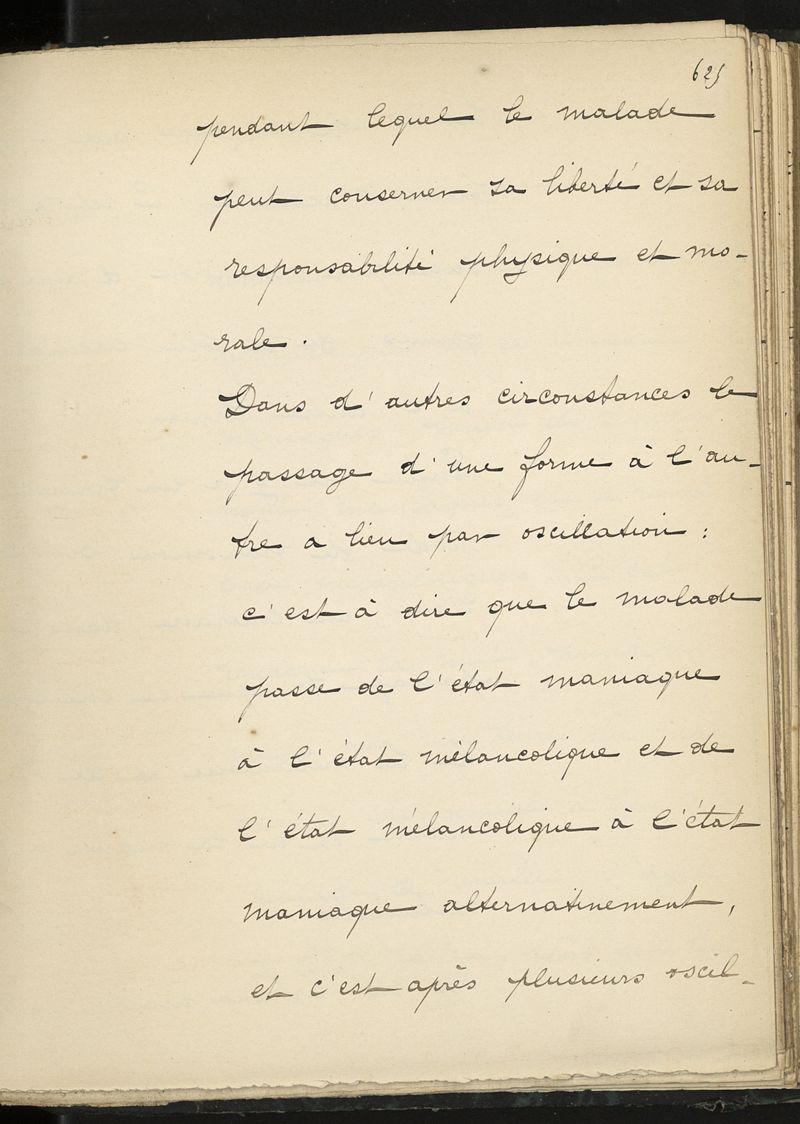 625
pendant lequel le malade
peut conserver sa liberté et sa
responsabilité physique et mo-
rale.
Dans d'autres circonstances le
passage d'une forme à l'au-
tre a lieu par oscillation :
c'est à dire que le malade
passe de l'état maniaque
à l'état mélancolique et de
l'état mélancolique à l'état
maniaque alternativement,
et c'est après plusieurs oscil-